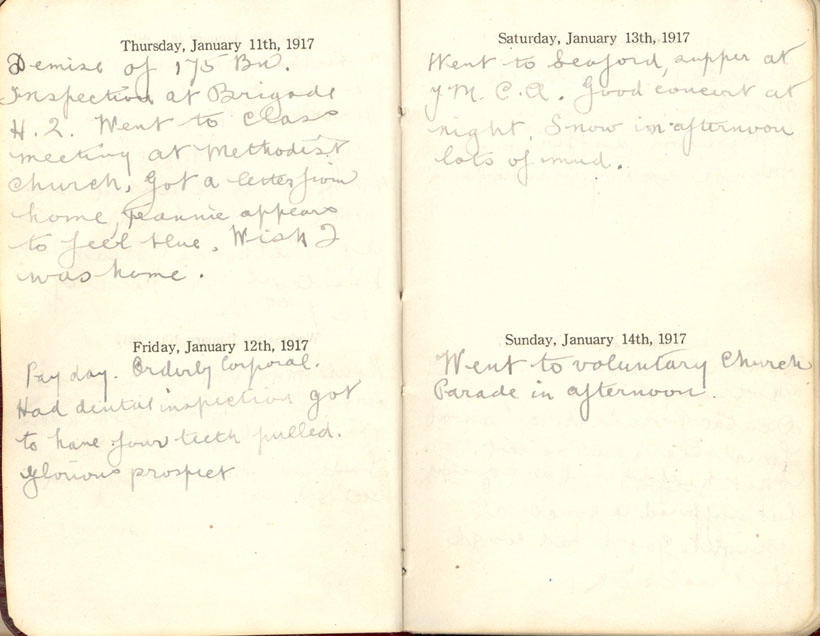 Thursday, January 11th, 1917
Demise of 175 Bn.
Inspection at Brigade
H. 2. Went to Class
meeting at Methodist
Church, Got a letter from
home, Jeannie appears
to feel blue. Wish I
was home.
Friday, January 12th, 1917
Pay day. Orderly Corporal.
Had dental inspection got
to have four teeth pulled.
Glorious prospect
Saturday, January 13th, 1917
Went to Seaford, supper at
Y.M.C.A. Good concert at
night. Snow in afternoon
lots of mud.
Sunday, January 14th, 1917
Went to voluntary Church
Parade in afternoon.